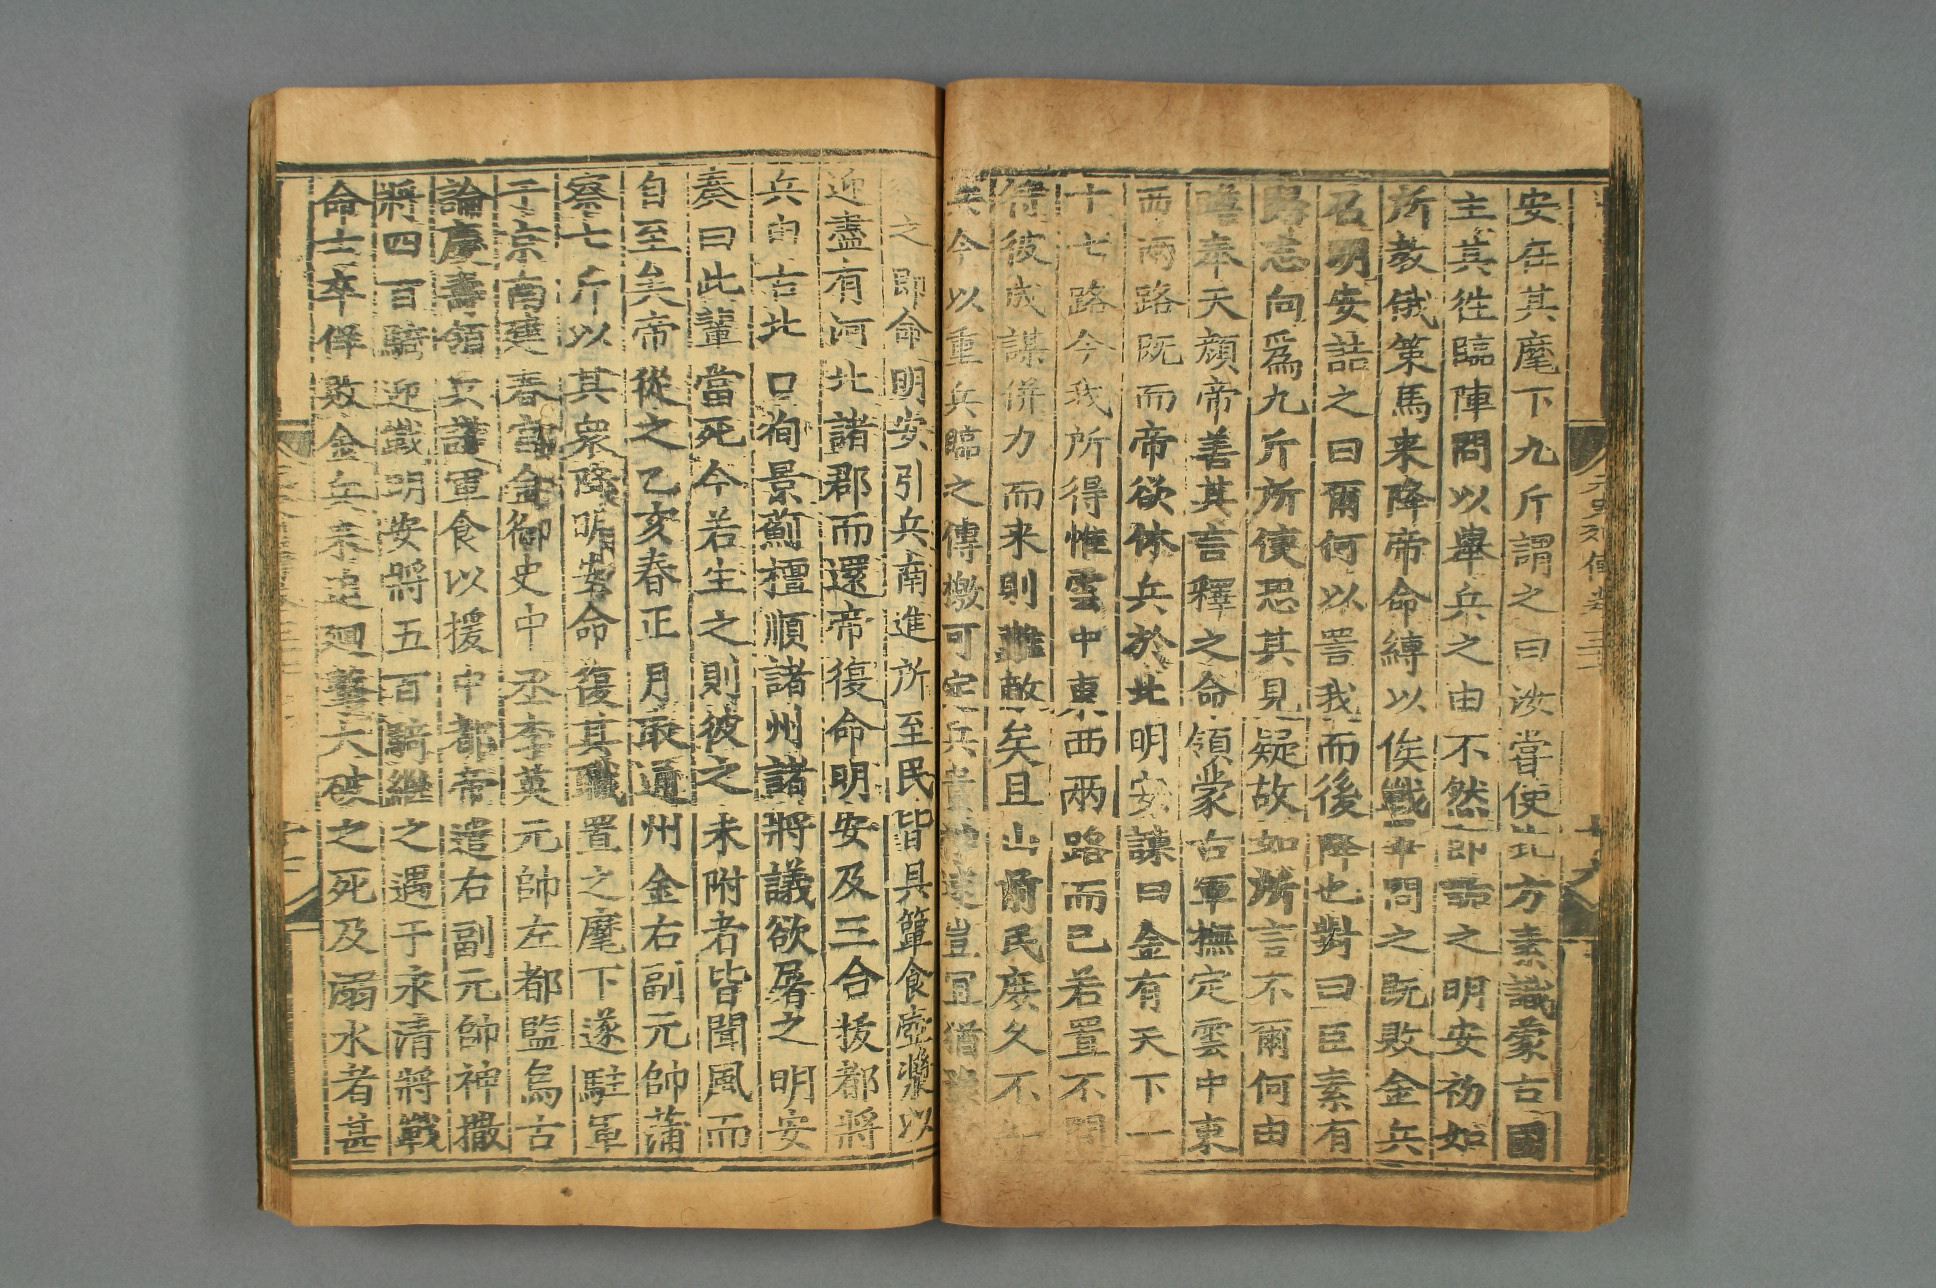 安在其麾下九斤謂之曰汝嘗使北方素識蒙古國
主其徃臨陣問以舉兵之由不然即詬之明安初如
所教俄策馬来降帝命縛以俟戰畢問之既敗金兵
召明安詰之曰爾何以詈我而後降也對曰臣素有
歸志向爲九斤所使恐其見疑故如所言不爾何由
瞻奉天顔帝善其言釋之命領蒙古軍撫定雲中東
西兩路既而帝欲休兵於北明安諫曰金有天下一
十七路今我所得惟雲中東西兩路而已若置不問
待彼成謀併力而来則難敵矣且山前民廣久不知
兵今以重兵臨之傳檄可定兵貴神速豈宜猶豫
之即命明安引兵南進所至民皆具簞食壺漿以
迎盡有河北諸郡而還帝復命明安及三合拔都將
兵由古北口徇景薊檀順諸州諸將議欲屠之明安
奏曰此輩當死今若生之則彼之未附者皆聞風而
自至矣帝從之乙亥春正月取通州金右副元帥蒲
察七斤以其衆降明安命復其職置之麾下遂駐軍
于京南建春宫金御史中丞李英元帥左都監烏古
論慶壽領兵護軍食以援中都帝遣右副元帥神撒
將四百騎迎戰明安將五百騎繼之遇于永清將戰
命士卒佯敗金兵来追廻擊大破之死及溺水者甚
元史列傳卷三十七
十八